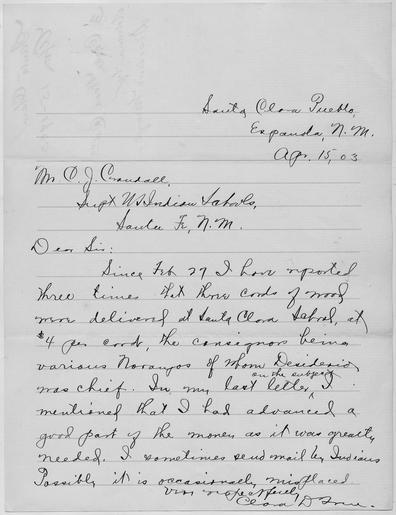 Santa Clara Pueblo,
Espanola, N.M.
Apr. 15, 03
Mr C. J. Crandall,
Supt US Indian Schools,
Santa Fe, N.M.
Dear Sir:
Since Feb 27 I have reported
three times that three cords of wood
were delivered at Santa Clara School, at
$4 per cord, the consignors being
various Naranjos of whom Desiderio
was chief. In my last letter, on the subject I
mentioned that I had advanced a
good part of the money as it was greatly
needed. I sometimes send mail by Indians
Possibly it is occasionally misplaced
Very respectfully
Clara D True.